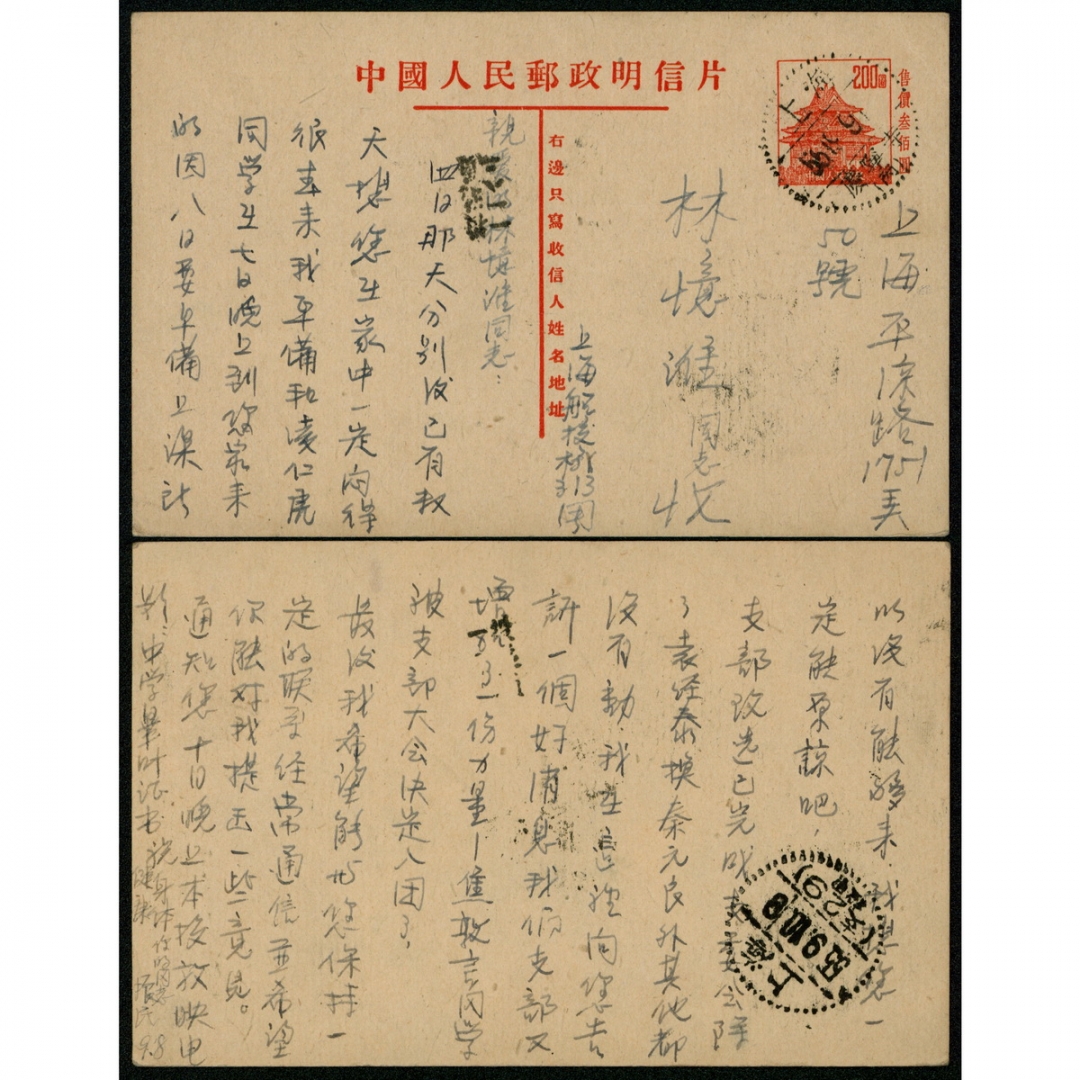 中國人民郵政明信片
200圓
售價叁佰圓
右邊只寫收信人姓名地址
上海平涼路1751弄
50號
林憶淮同志 收
上海船校 313周
親愛的林憶淮同志：
四日那天分別後已有数
天想您在家中一定闷得
很 本来我準備和凌仁虎
同学在七日晚上到您家来
的因八日要準備上课所
以没有能够来 我想您一
定能原諒吧，
支部改选已完成 支委会除
了袁经泰換秦元良外其他都
没有動 我在這裡向您告
訴一個好消息我们支部又
增强了一份力量－焦敦言同学
被支部大会决定入团了，
最后我希望能与您保持一
定的联系经常通信並希望
你能对我提出一些意见。
通知您十日晚上本校放映电
影：中学畢业证书 祝身体
健康
9.8
上海
53.9.
上海